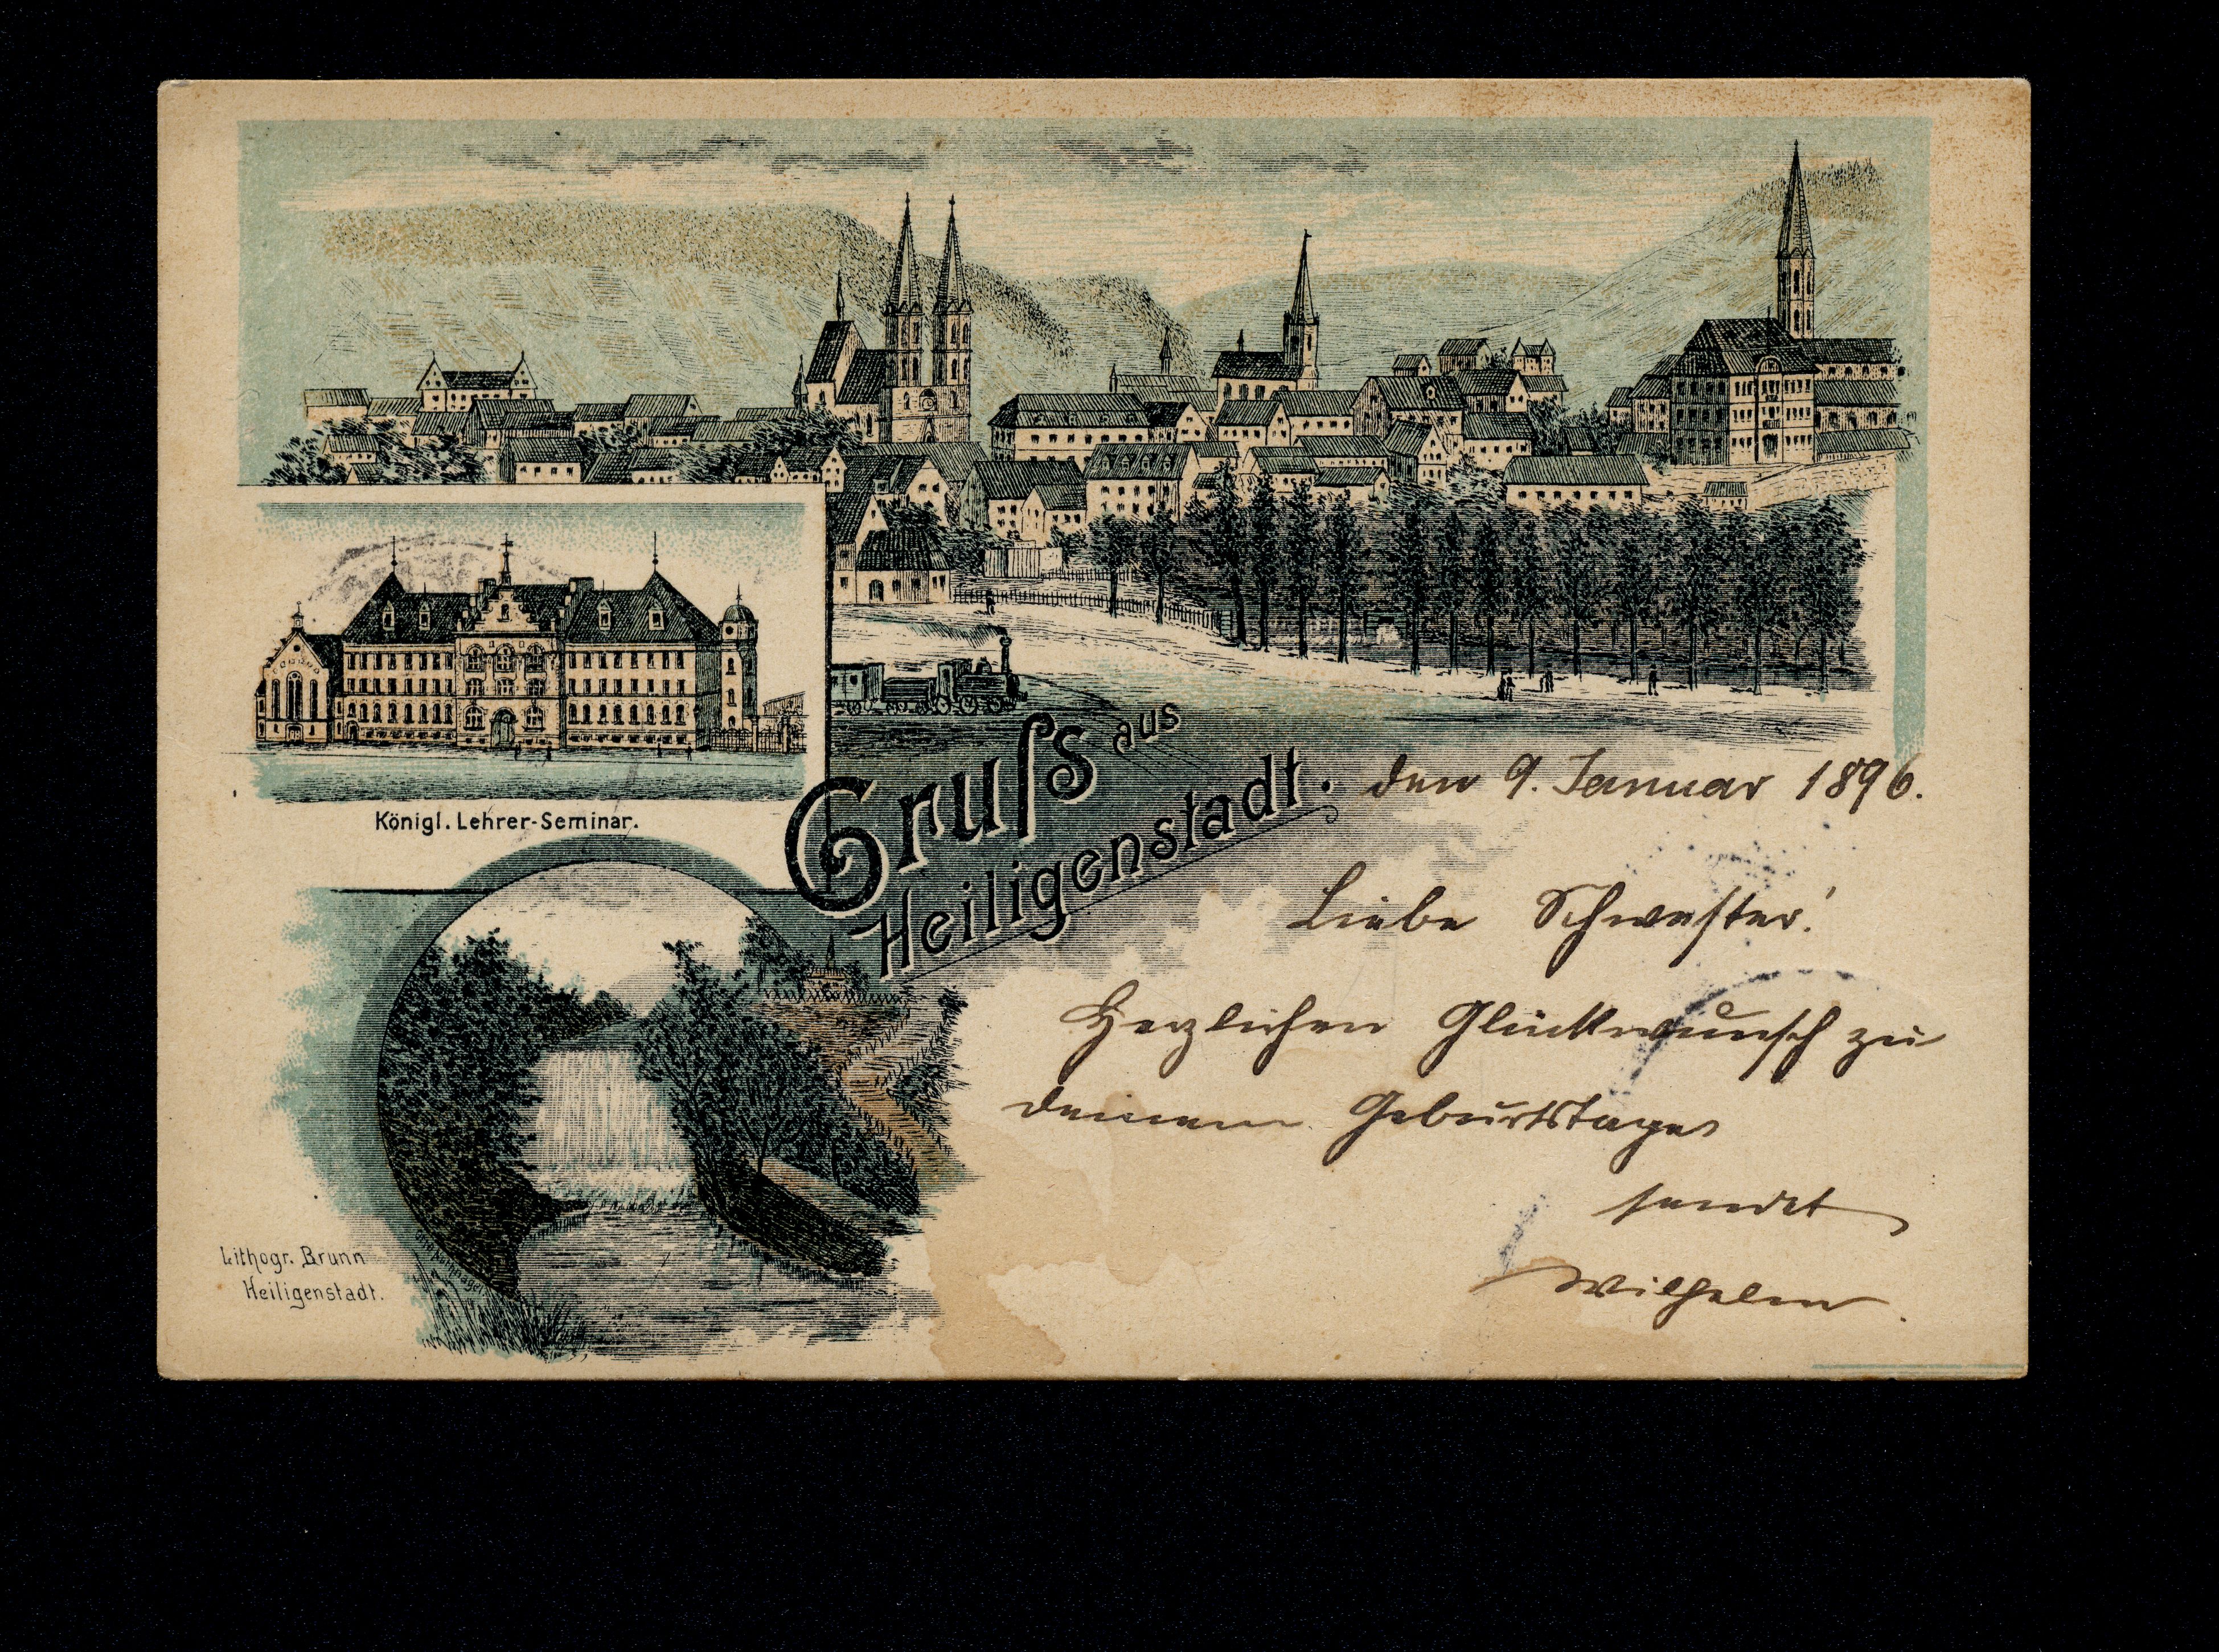 Gruſs aus
Heiligenstadt.
den 9. Januar 1896.
Königl. Lehrer-Seminar.
Liebe Schwester!
Herzlichen Glückwunsch zu
deinem Geburtstage
sendet
Wilhelm.
Lithogr. Brunn
Heiligenstadt.